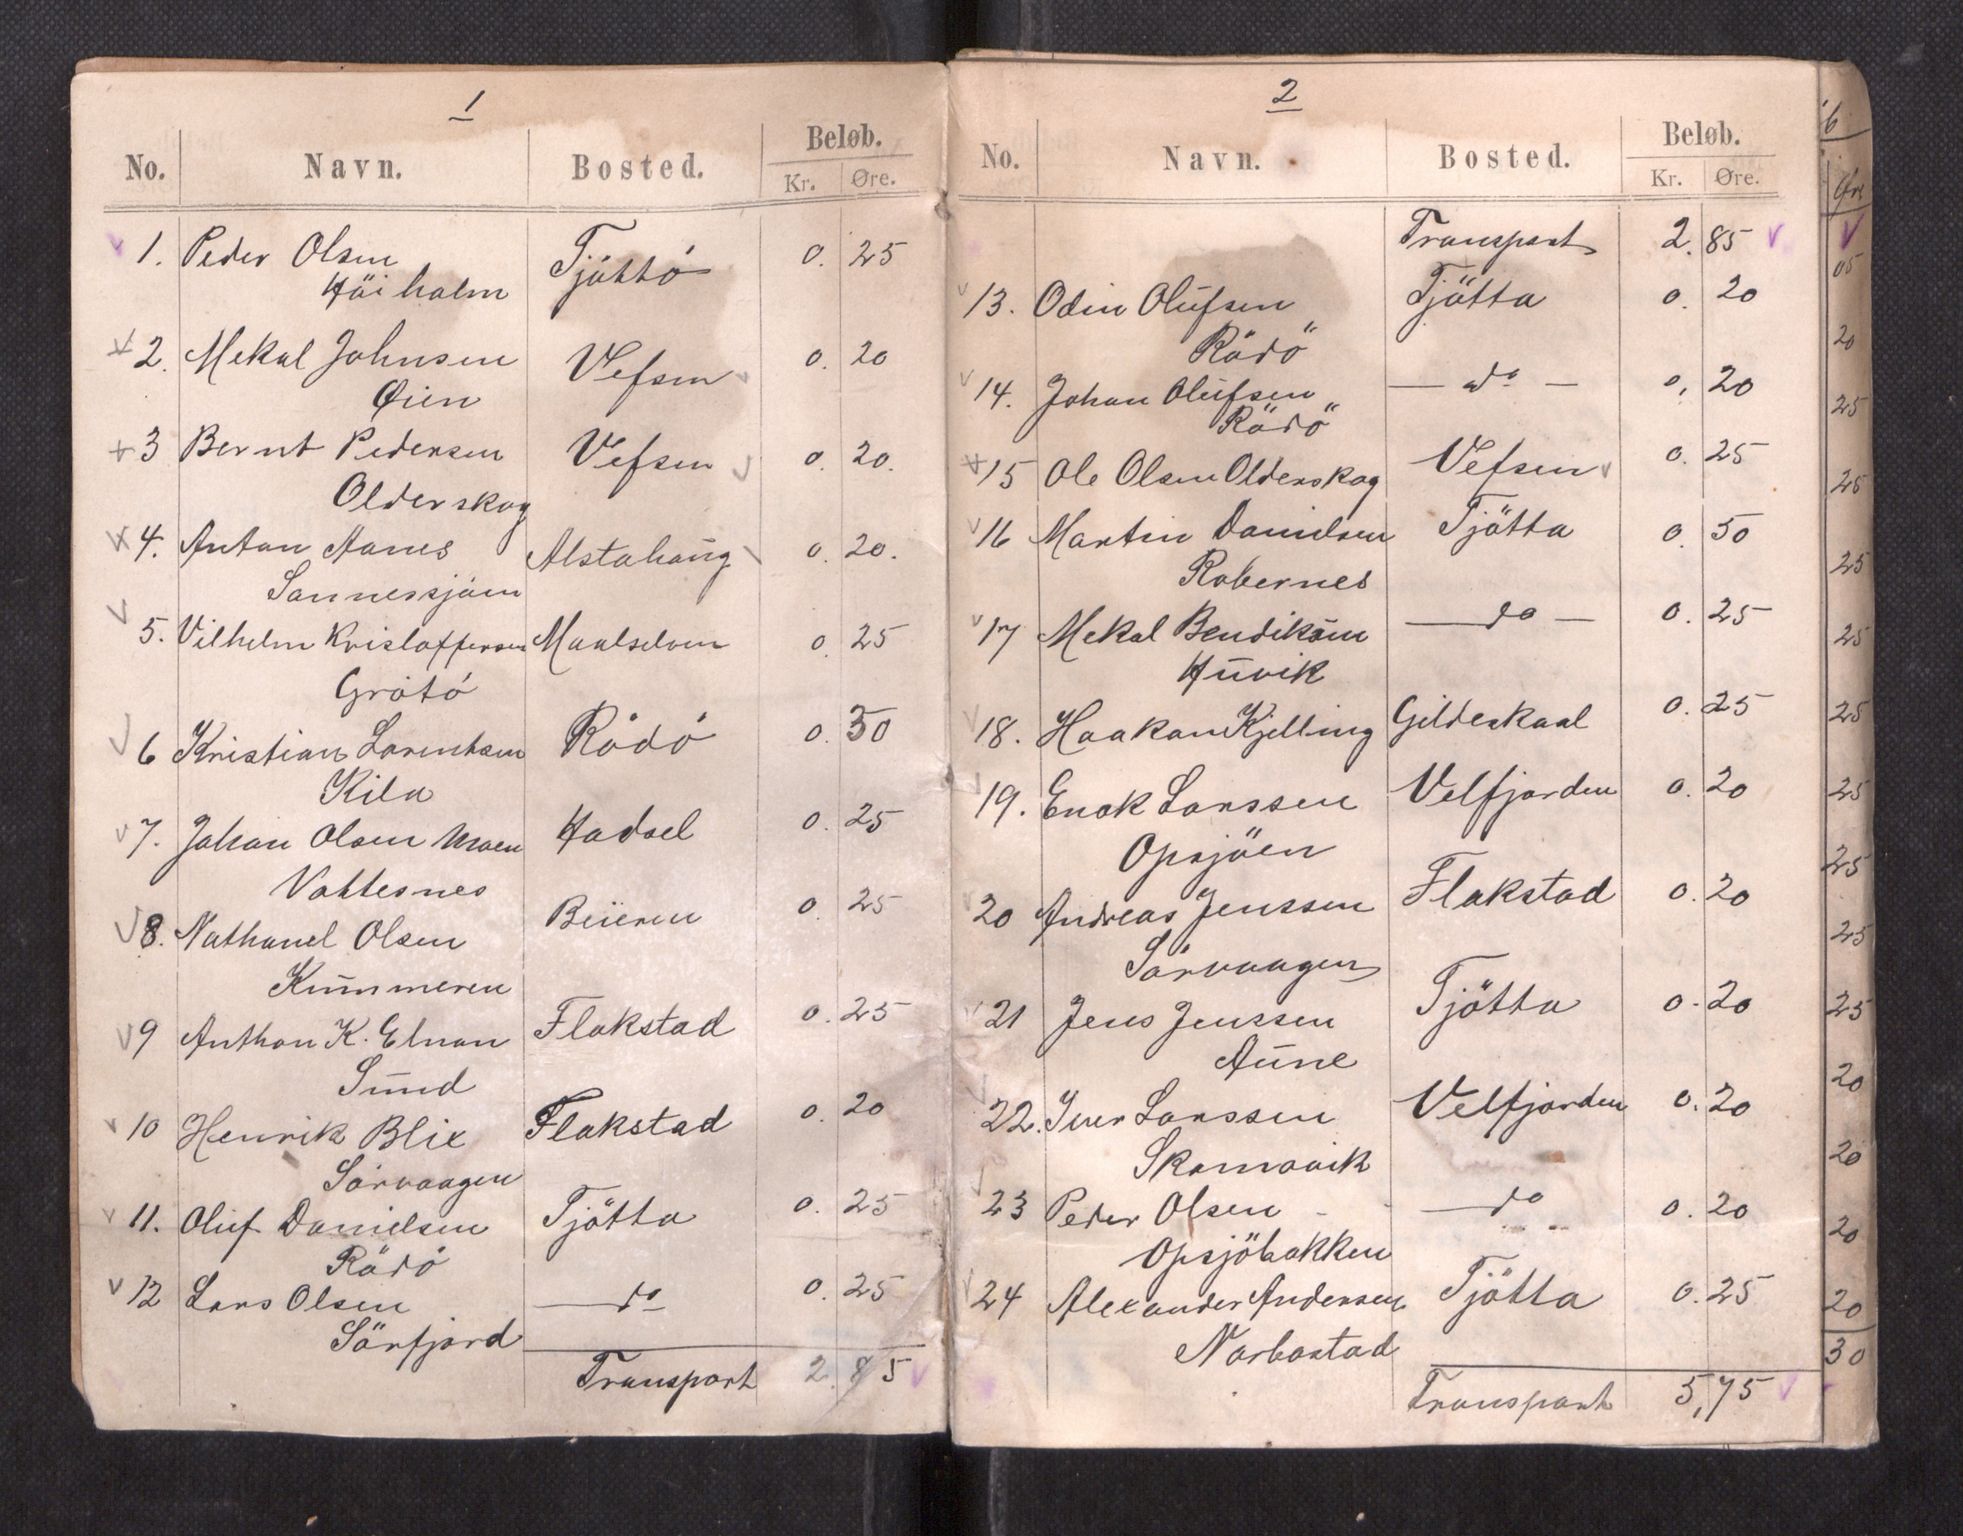 1
No. Navn. Bosted. Beløb.
Kr. Øre.
1. Peder Olsen Tjöttö 0. 25
Höiholm
2. Mekal Johnsen Vefsen 0. 20
Øien
3 Bernt Pedersen Vefsen 0. 20.
Olderskog
4. Anton Aanes Alstahaŭg 0. 20.
Sannessjöen
5. Vilhelm Kristoffersen Maalselven 0. 25
Grötö
6 Kristian Lorentsen Rödö 0. 30
Kila
7. Johan Olsen Moen Hadsel 0. 25
Vottesnes
8. Nathanel Olsen Beieren 0. 25
Kŭmmeren
9 Anthon K. Elnan Flakstad 0. 25
Sŭnd
10 Henrik Blix Flakstad 0. 20
Sörvaagen
11. Olŭf Danielsen Tjötta 0. 25
Rödö
12 Lars Olsen — do — 0. 25
Sörfjord
Transport 2. 85
2
No. Navn. Bosted. Beløb.
Kr. Øre.
Transport 2. 85
13. Odin Olŭfsen Tjötta 0. 20
Rödö
14. Johan Olŭfsen — do — 0, 20
Rödö
15 Ole Olsen Olderskog Vefsen 0. 25
16 Martin Danielsen Tjötta 0. 50
Rabernes
17 Mekal Bendiksen — do — 0. 25
Hŭvik
18. Haakon Kjelling Gildeskaal 0. 25
19. Enok Larssen Velfjorden 0. 20
Opsjöen
20 Andreas Jenssen Flakstad 0. 20
Sörvaagen
21 Jens Jenssen Tjötta 0. 20
Aŭne
22. Iver Larssen Velfjorden 0. 20
Skomovik
23 Peder Olsen — do 0. 20
Opsjöbakken
24 Alexander Andersen Tjötta 0. 25
Norbostad
Transport 5,75
6
Øre
05
20
25
25
25
25
25
25
25
25
25
20
20
20
20
30